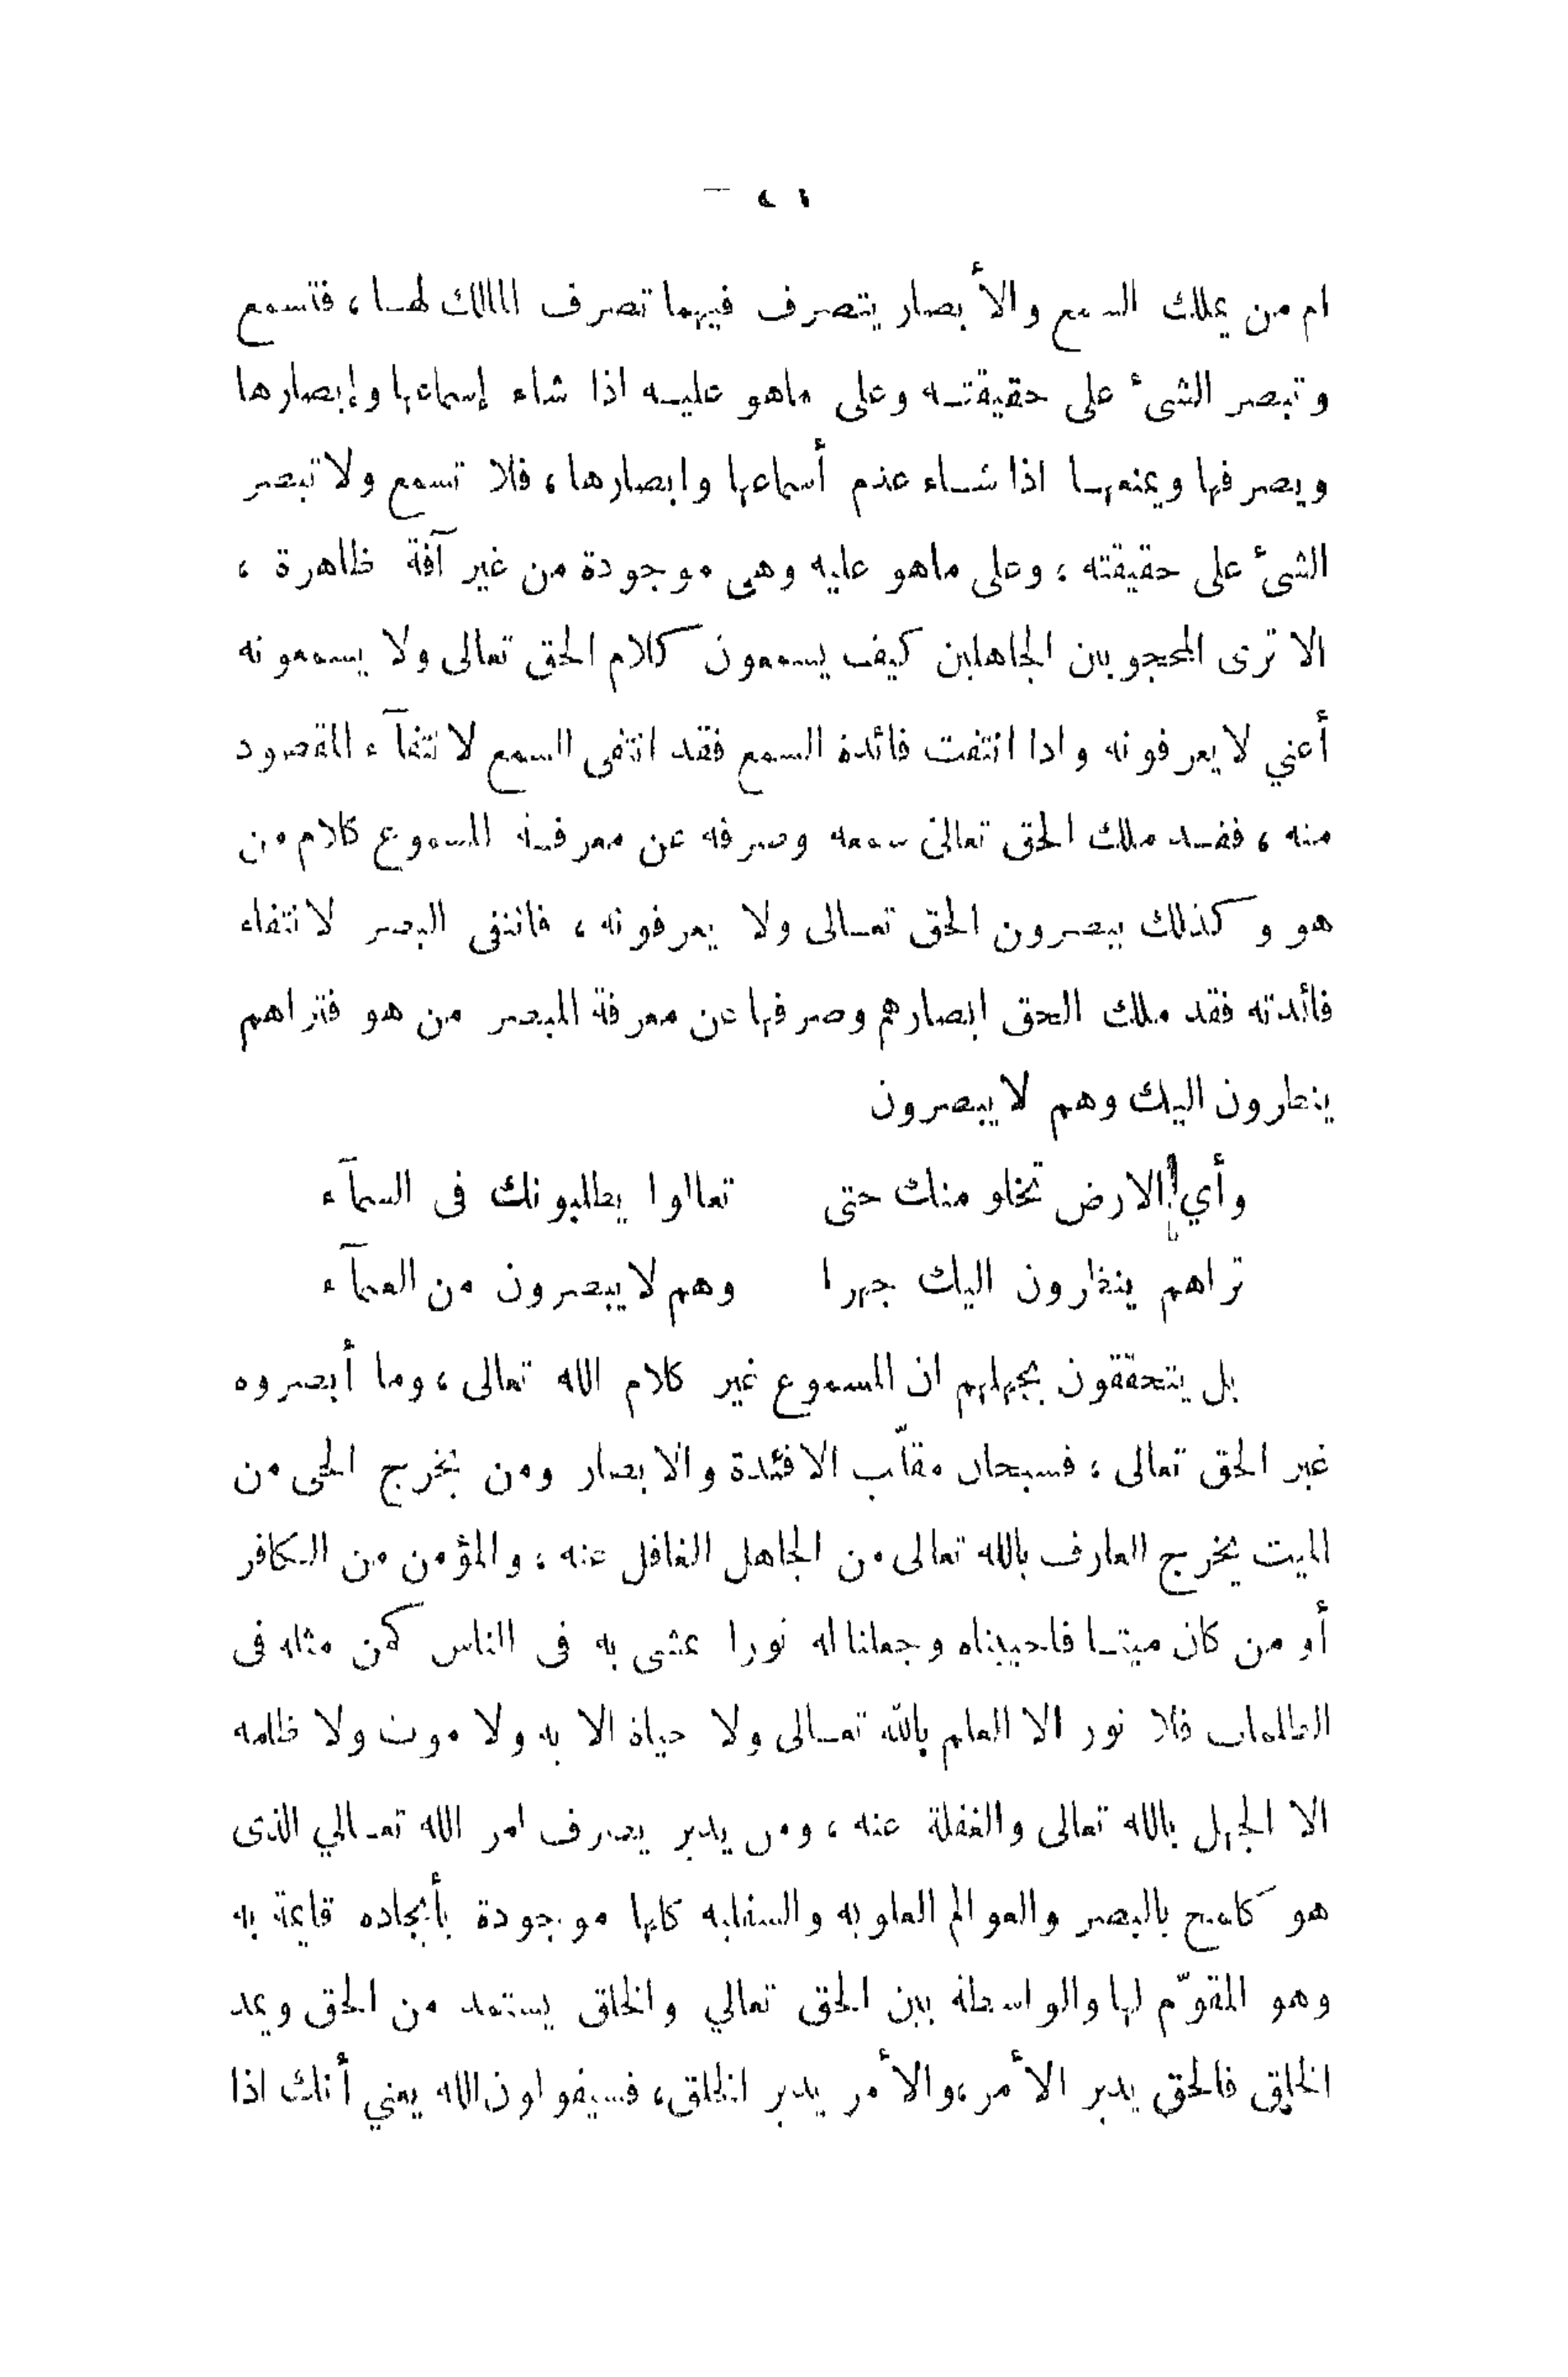 ام من يملك السمع والأبصار يتصرف فيهما تصرف المالك لهـا ، فتسمع
وتبصر الشىء على حقيقتـه وعلى ماهو عليـه اذا شاء إسماعها وإبصارها
ويصرفها ويمنعهـا اذا شـاء عدم أسماعها وابصارها ، فلا تسمع ولا تبصر
الشىء على حقيقته ، وعلى ماهو عليه وهى موجودة من غير آفة ظاهرة ،
الا ترى المحجوبين الجاهلين كيف يسمعون كلام الحق تعالى ولا يسمعونه
أعني لايعرفونه واذا انتفت فائدة السمع فقد انتفى السمع لانتفآء المقصود
منه ، فقـد ملك الحق تعالى سمعه وصرفه عن معرفة المسموع كلام من
هو وكذلك يبصرون الحق تعـالى ولا يعرفونه ، فانتفى البصر لانتفاء
فائدته فقد ملك الحق ابصارهم وصرفها عن معرفة المبصر من هو فتراهم
ينظرون اليك وهم لايبصرون
وأي الارض تخلو منك حتى تعالوا يطلبونك فى السمآء
تراهم ينظرون اليك جهرا وهم لايبصرون من العمآء
بل يتحققون بجهلهم ان المسموع غير كلام الله تعالى ، وما أبصروه
غير الحق تعالى ، فسبحان مقلّب الافئدة والابصار ومن يخرج الحى من
الميت يخرج العارف بالله تعالى من الجاهل الغافل عنه ، والمؤمن من الكافر
أو من كان ميتـا فاحييناه وجعلنا له نورا يمشى به فى الناس كمن مثله فى
الظلمات فلا نور الا العلم بالله تعـالى ولا حياة الا به ولا موت ولا ظلمه
الا الجهل بالله تعالى والغفلة عنه ، ومن يدبر يصرف امر الله تعـالي الذى
هو كلمح بالبصر والعوالم العلويه والسفليه كلها موجودة بأيجاده قائمة به
وهو المقوّم لها والواسطة بين الحق تعالي والخلق يستمد من الحق ويمد
الخلق فالحق يدبر الأمر ،والأمر يدبر الخلق ، فسيقولون الله يعني أنك اذا